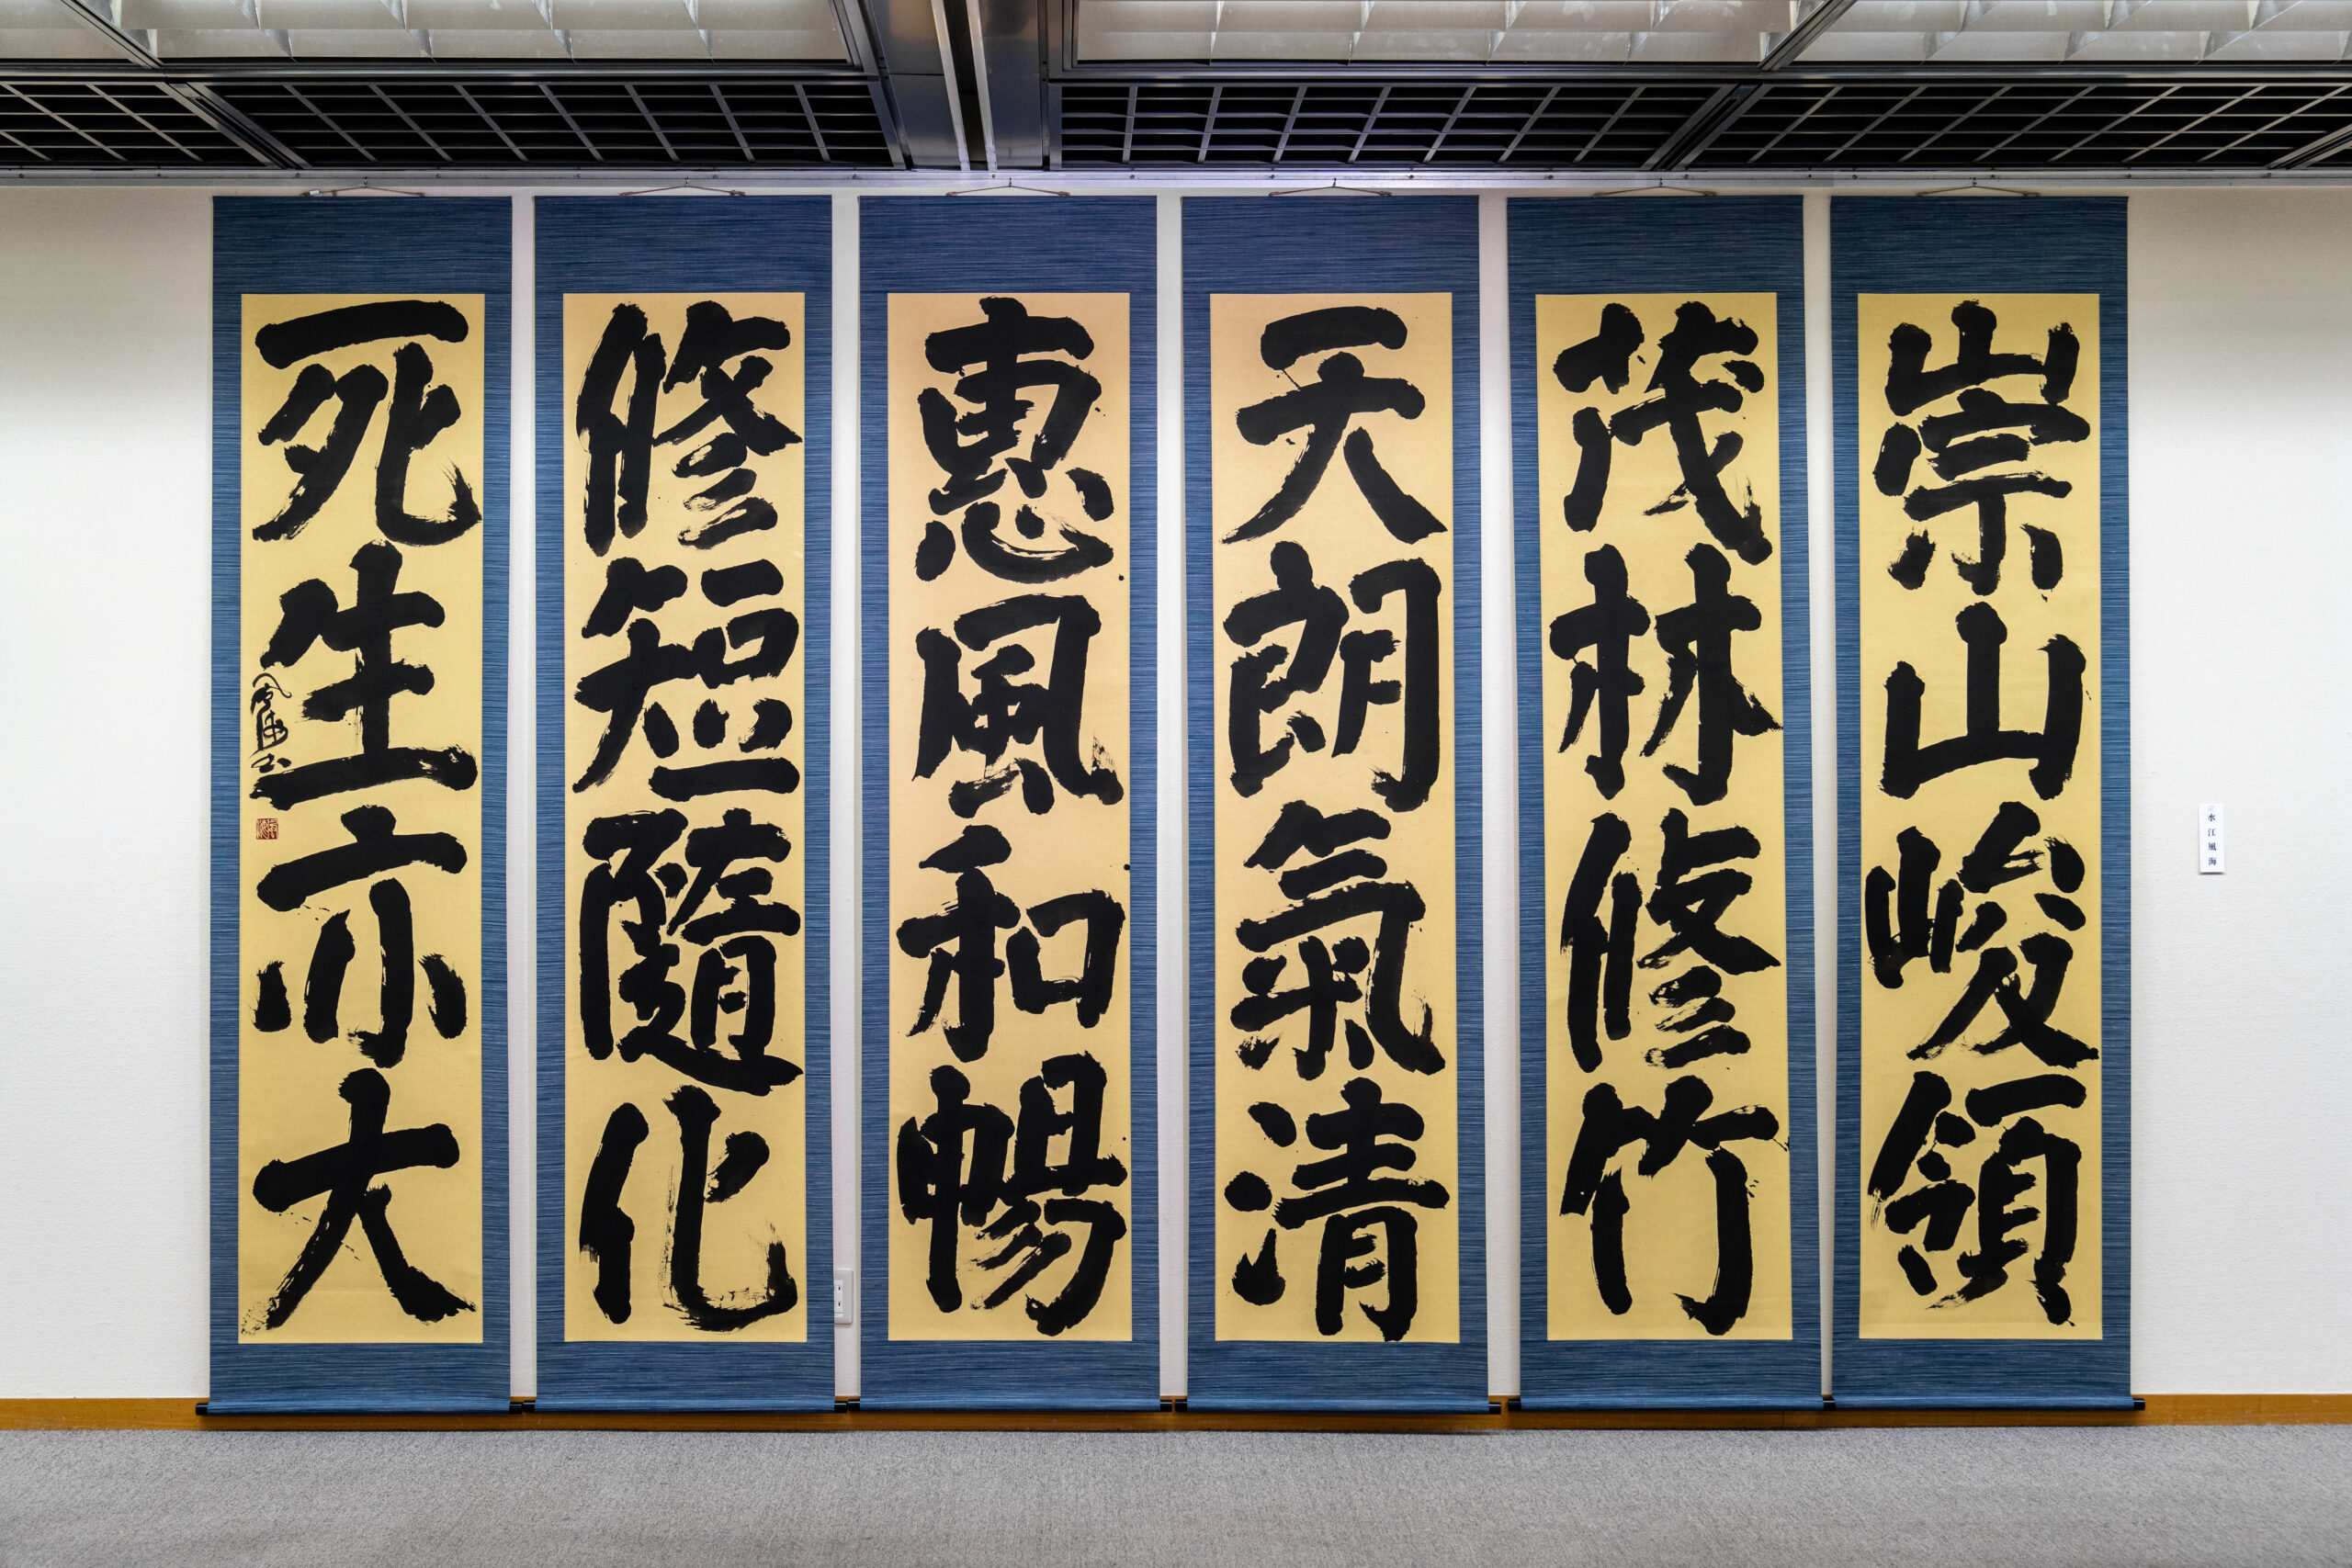 崇山峻領
茂林修竹
天朗氣清
惠風和暢
修短隨化
死生亦大
風海書
水江風海